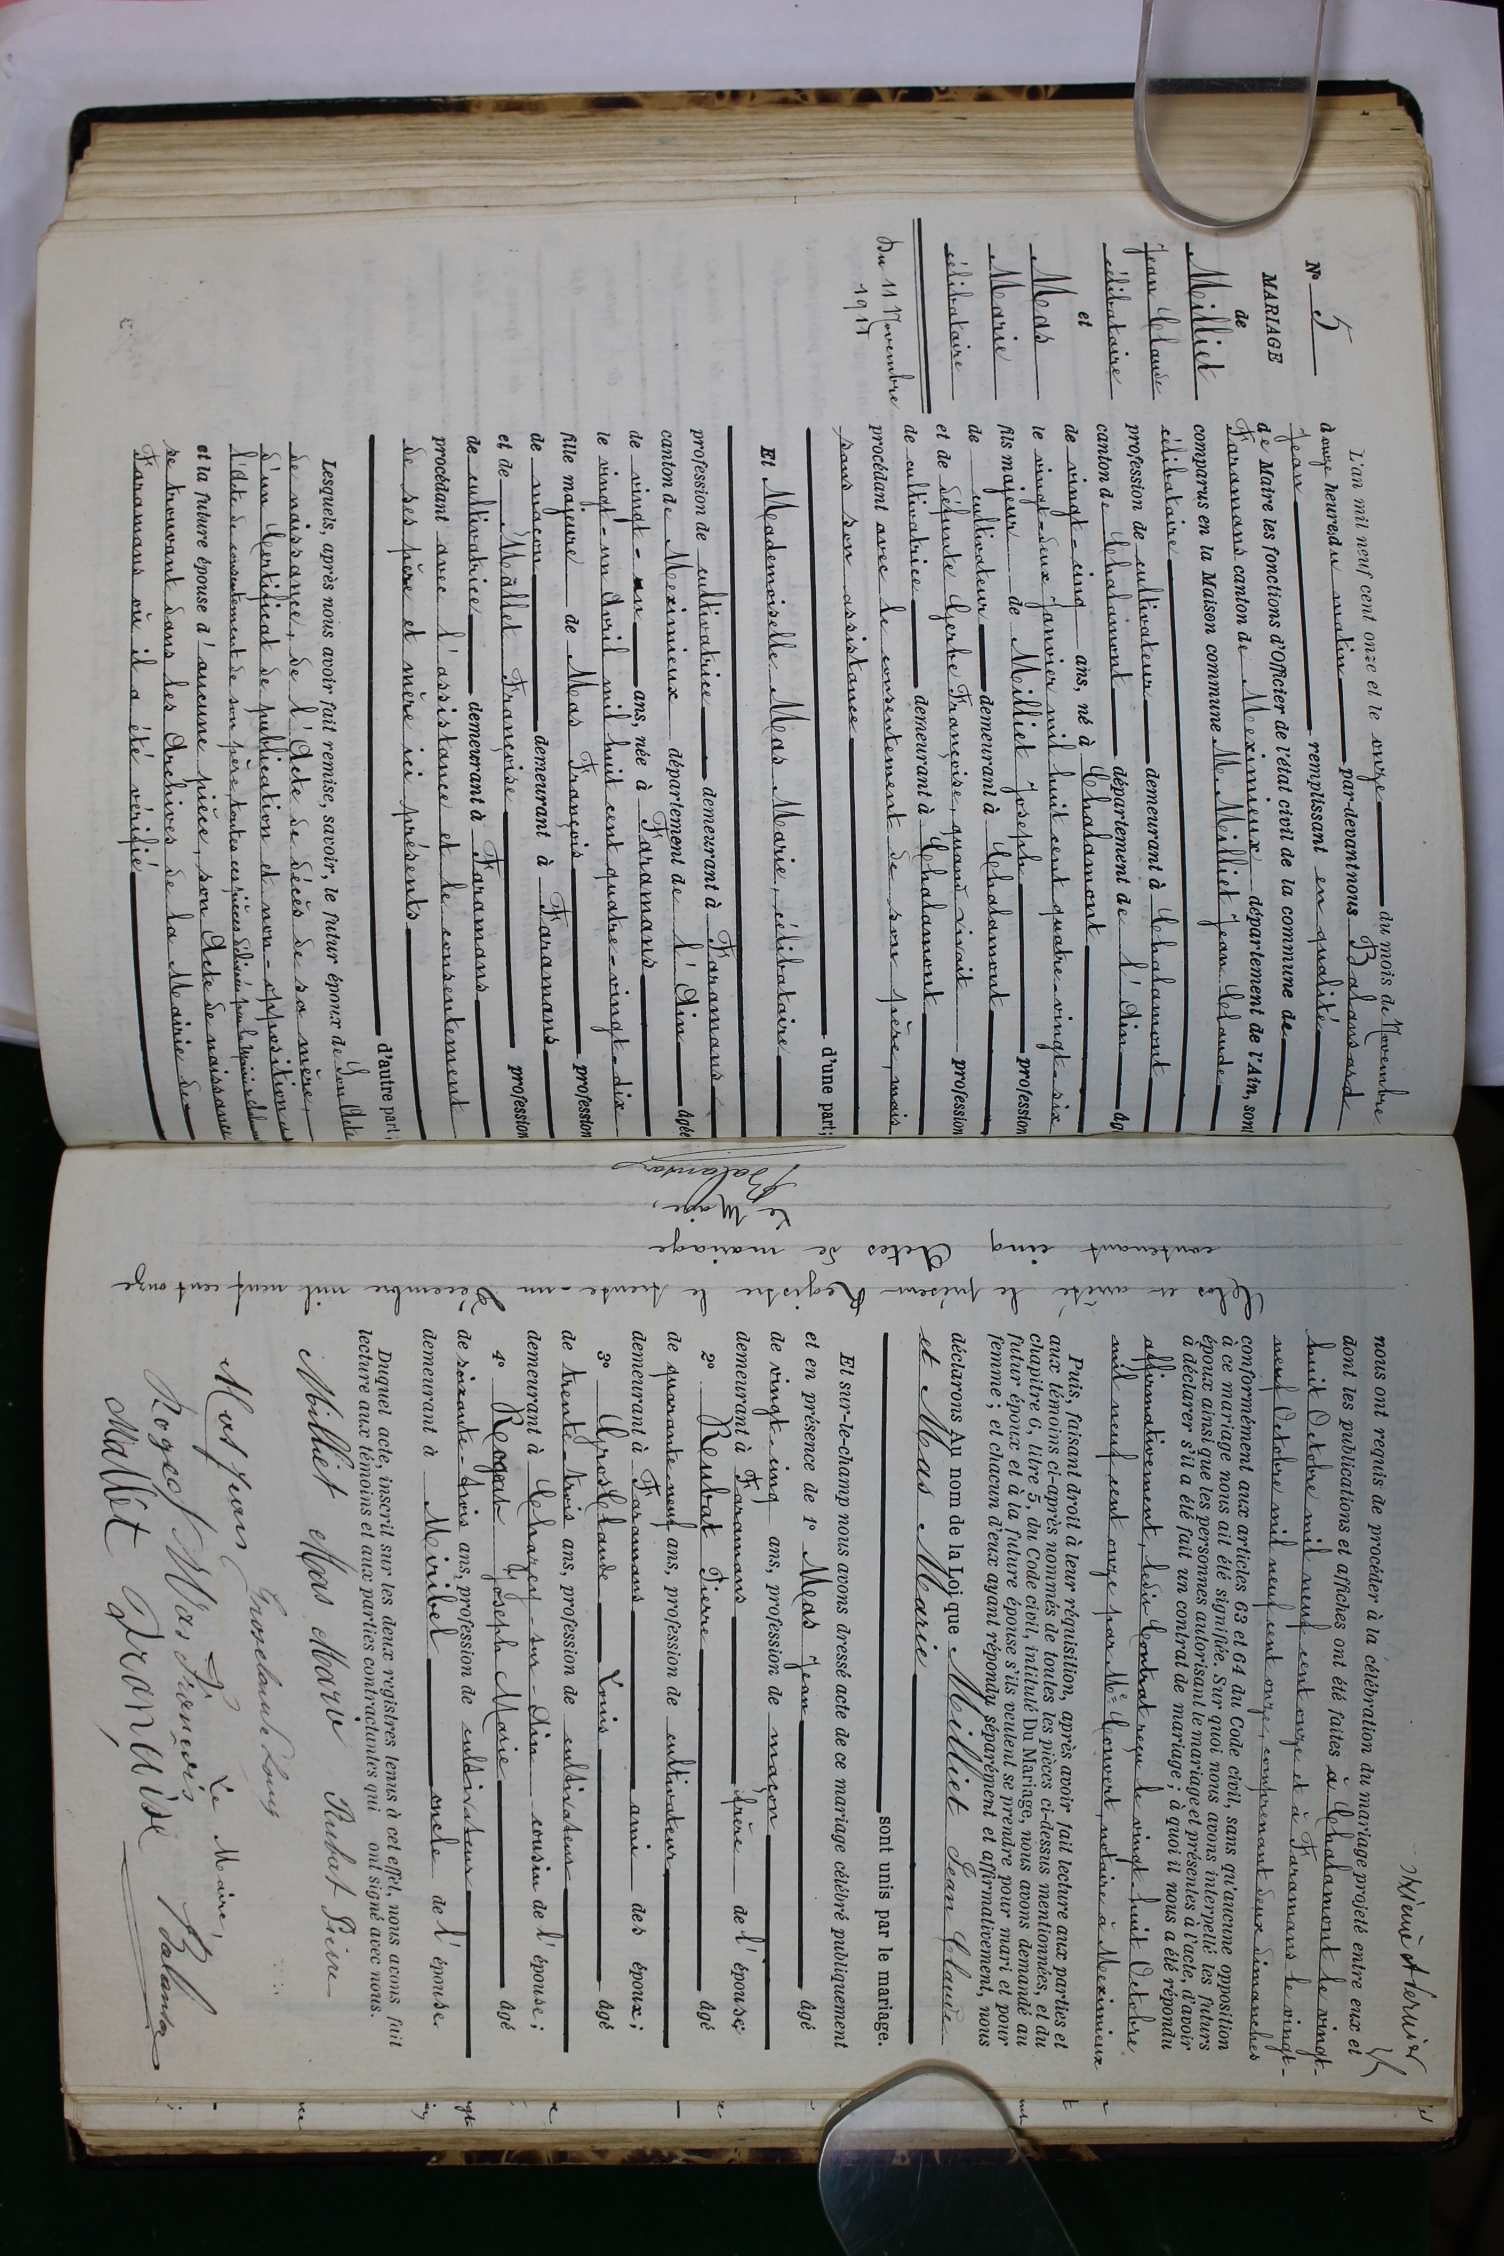 N° 5
MARIAGE
de
Milliet
Jean Claude
célibataire
et
Mas
Marie
célibataire
Du 11 Novembre
1911
L'an mil neuf cent onze et le onze du mois de Novembre
à onze heures du matin par-devant nous Balansard
Jean remplissant en qualité
de Maire les fonctions d'Officier de l'état civil de la commune de
Faramans canton de Meximieux département de l'Ain, sont
comparus en la Maison commune M. Milliet Jean Claude
célibataire
profession de cultivateur demeurant à Chalamont
canton de Chalamont département de l'Ain âgé
de vingt-cinq ans, né à Chalamont
le vingt-deux Janvier mil huit cent quatre-vingt-six
fils majeur de Milliet Joseph profession
de cultivateur demeurant à Chalamont
et de défunte Gerbe Françoise, quand vivait profession
de cultivatrice demeurant à Chalamont
procédant avec le consentement de son père, mais
sans son assistance
d'une part;
Et Mademoiselle Mas Marie, célibataire
profession de cultivatrice demeurant à Faramans
canton de Meximieux département de l'Ain âgée
de vingt-un ans, née à Faramans
le vingt-un Avril mil huit cent quatre-vingt-dix
fille majeure de Mas François profession
de maçon demeurant à Faramans
et de Mallet Françoise profession
de cultivatrice demeurant à Faramans
procédant avec l'assistance et le consentement
de ses père et mère ici présents
d'autre part;
Lesquels, après nous avoir fait remise, savoir, le futur époux de son Acte
de naissance, de l'Acte de décès de sa mère,
d'un Certificat de publication et non-opposition et
l'Acte de consentement de son père toutes ces pièces délivrées par le Maire de
et la future épouse d'aucune pièce, son Acte de naissance
se trouvant dans les Archives de la Mairie de
Faramans où il a été vérifié
Clos et arrêté le présent Registre le trente-un Décembre mil neuf cent onze
contenant cinq Actes de mariage
Le Maire,
Balansard
et dernier
nous ont requis de procéder à la célébration du mariage projeté entre eux et
dont les publications et affiches ont été faites à Chalamont le vingt-
huit Octobre mil neuf cent onze et à Faramans le vingt-
neuf Octobre mil neuf cent onze, comprenant deux dimanches
conformément aux articles 63 et 64 du Code civil, sans qu'aucune opposition
à ce mariage nous ait été signifiée. Sur quoi nous avons interpellé les futurs
époux ainsi que les personnes autorisant le mariage et présentes à l'acte, d'avoir
à déclarer s'il a été fait un contrat de mariage; à quoi il nous a été répondu
affirmativement, ledit Contrat reçu le vingt huit Octobre
mil neuf cent onze par Me Convert, notaire à Meximieux
Puis, faisant droit à leur réquisition, après avoir fait lecture aux parties et
aux témoins ci-après nommés de toutes les pièces ci-dessus mentionnées, et du
chapitre 6, titre 5, du Code civil, intitulé Du Mariage, nous avons demandé au
futur époux et à la future épouse s'ils veulent se prendre pour mari et pour
femme; et chacun d'eux ayant répondu séparément et affirmativement, nous
déclarons Au nom de la Loi que Milliet Jean Claude
et Mas Marie
sont unis par le mariage.
Et sur-le-champ nous avons dressé acte de ce mariage célébré publiquement
et en présence de 1° Mas Jean âgé
de vingt-cinq ans, profession de maçon
demeurant à Faramans frère de l'épouse;
2° Reubat Pierre âgé
de quarante-neuf ans, profession de cultivateur
demeurant à Faramans ami des époux;
3° Grosclaude Louis âgé
de trente-trois ans, profession de cultivateur
demeurant à Charnoz-sur-Ain cousin de l'épouse;
4° Rogeat Joseph Marie âgé
de soixante-trois ans, profession de cultivateur
demeurant à Miribel oncle de l'épouse.
Duquel acte, inscrit sur les deux registres tenus à cet effet, nous avons fait
lecture aux témoins et aux parties contractantes qui ont signé avec nous.
Milliet Mas Marie Rubat Pierre
Mas Jean Grosclaude Louis
Rogeat Mas François Le Maire
Mallet Françoise Balansard